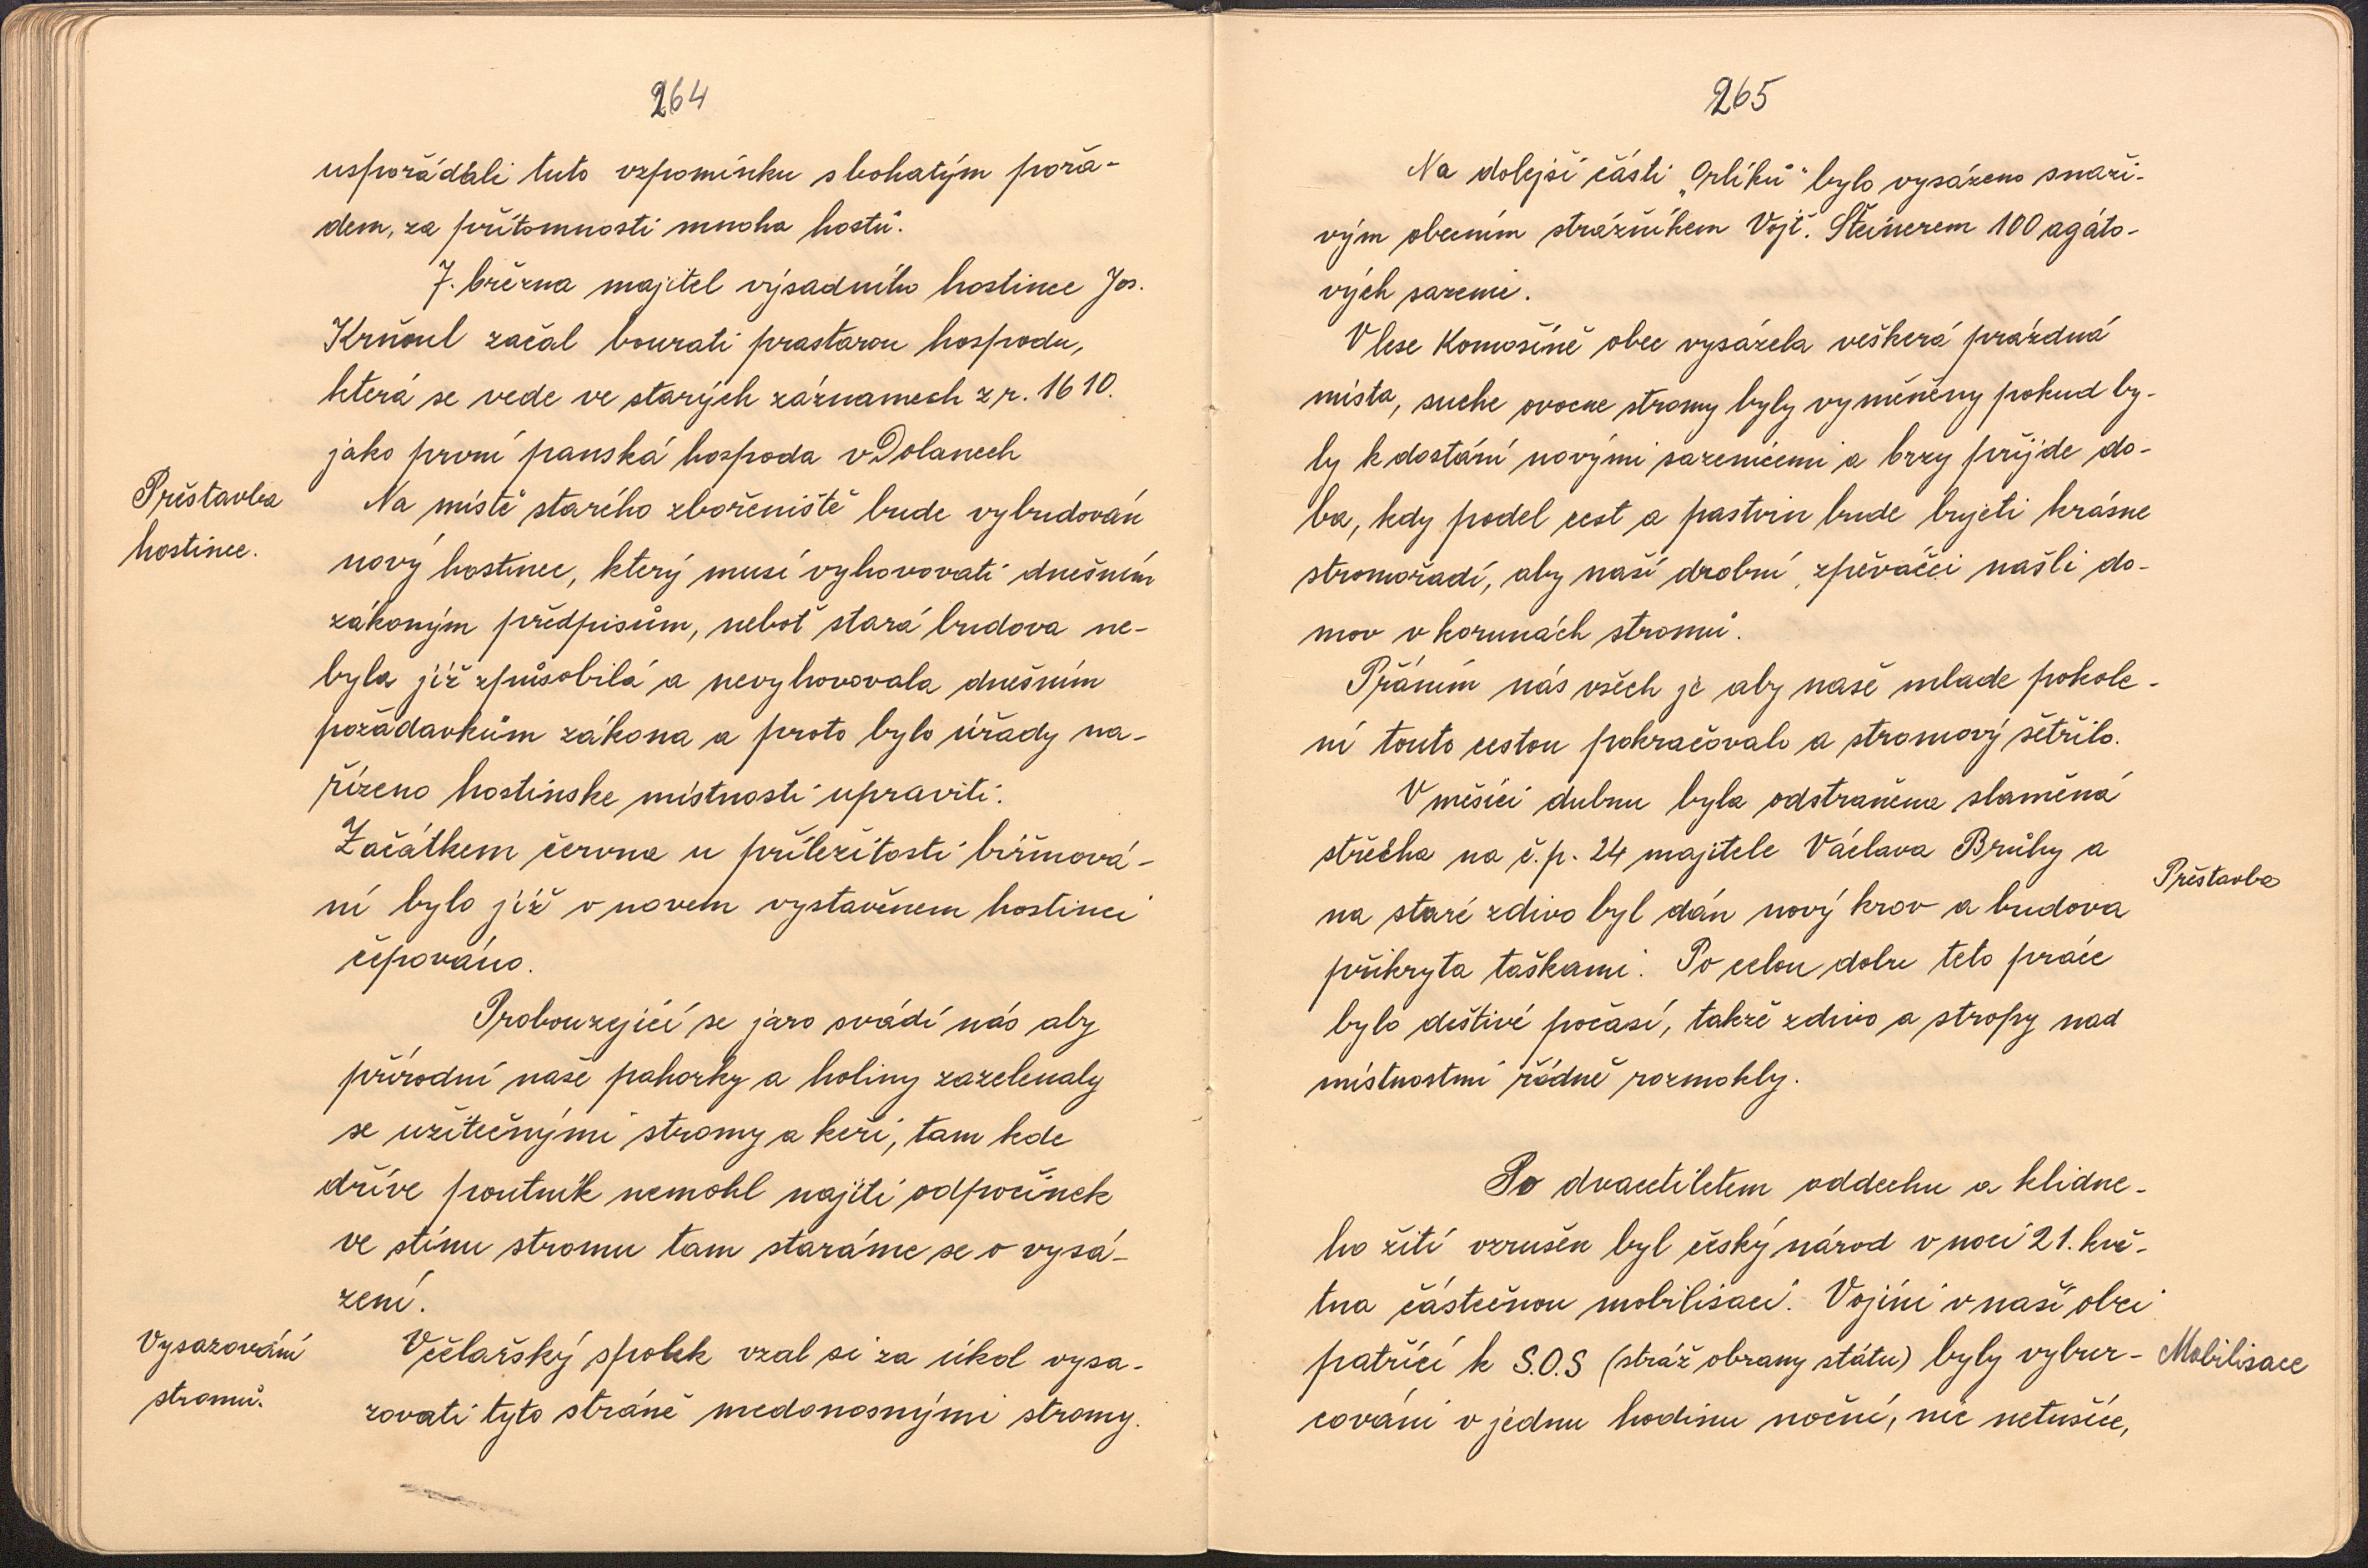 264
uspořádali tuto vzpomínku s bohatým pořa-
dem, za přítomnosti mnoha hostů.
7. března majitel výsadního hostince Jos.
Krňoul začal bourati prastarou hospodu,
která se vede ve starých záznamech z r. 1610.
jako první panská hospoda v Dolanech
Přestavba
hostince.
Na místě starého zbořeniště bude vybudován
nový hostinec, který musí vyhovovati dnešním
zákoným předpisům, neboť stará budova ne-
byla již způsobilá a nevyhovovala dnešním
požadavkům zákona a proto bylo úřady na-
řízeno hostinske místnosti upraviti.
Začátkem června u příležitosti biřmová-
ní bylo již v novem vystavěnem hostinci
čepováno.
Probouzející se jaro svádí nás aby
přírodní naše pahorky a holiny zazelenaly
se užitečnými stromy a keři, tam kde
dříve poutník nemohl najíti odpočinek
ve stínu stromu tam staráme se o vysá-
zení.
Vysazování
stromů.
Včelařský spolek vzal si za úkol vysa-
zovati tyto stráně medonosnými stromy.
265
Na dolejší části „Orlíků“ bylo vysázeno snaži-
vým obecním strážníkem Vojt. Šteinerem 100 agáto-
vých sazenic.
V lese Komošíně obec vysázela veškerá prázdná
místa, suche ovocne stromy byly vyměněny pokud by-
ly k dostání novými sazenicemi a brzy přijde do-
ba, kdy podel cest a pastvin bude bujeti krásne
stromořadí, aby naší drobní zpěváčci našli do-
mov v korunách stromů.
Přáním nás všech je aby naše mlade pokole-
ní touto cestou pokračovalo a stromový šetřilo.
V měsíci dubnu byla odstraněna slaměná
střecha na č.p. 24 majitele Václava Brůhy a
Přestavba
na staré zdivo byl dán nový krov a budova
přikryta taškami. Po celou dobu teto práce
bylo deštivé počasí, takže zdivo a stropy nad
místnostmi řádně rozmokly.
Po dvacetiletem oddechu a klidne-
ho žití vzrušen byl český národ v noci 21. kvě-
tna částečnou mobilisací. Vojíni v naší obci
patřící k S.O.S (stráž obrany státu) byly vybur-
Mobilisace
cováni v jednu hodinu noční, nic netušíce,